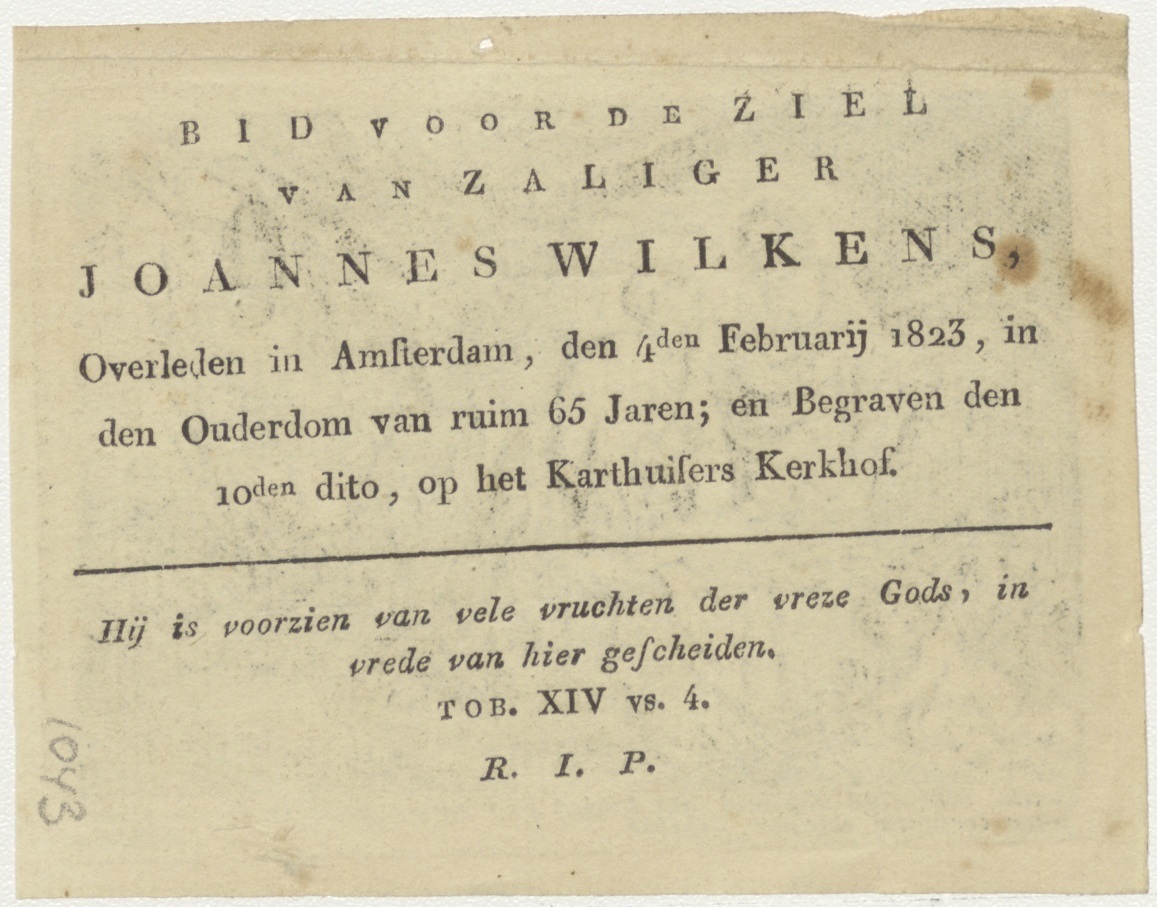 BID VOOR DE ZIEL
VAN ZALIGER
JOANNES WILKENS,
Overleden in Amſterdam, den 4den Februarij 1823, in
den Ouderdom van ruim 65 Jaren; en Begraven den
10den dito, op het Karthuiſers Kerkhof.
Hij is voorzien van vele vruchten der vreze Gods, in
vrede van hier geſcheiden.
TOB. XIV vs. 4.
R. I. P.
1043